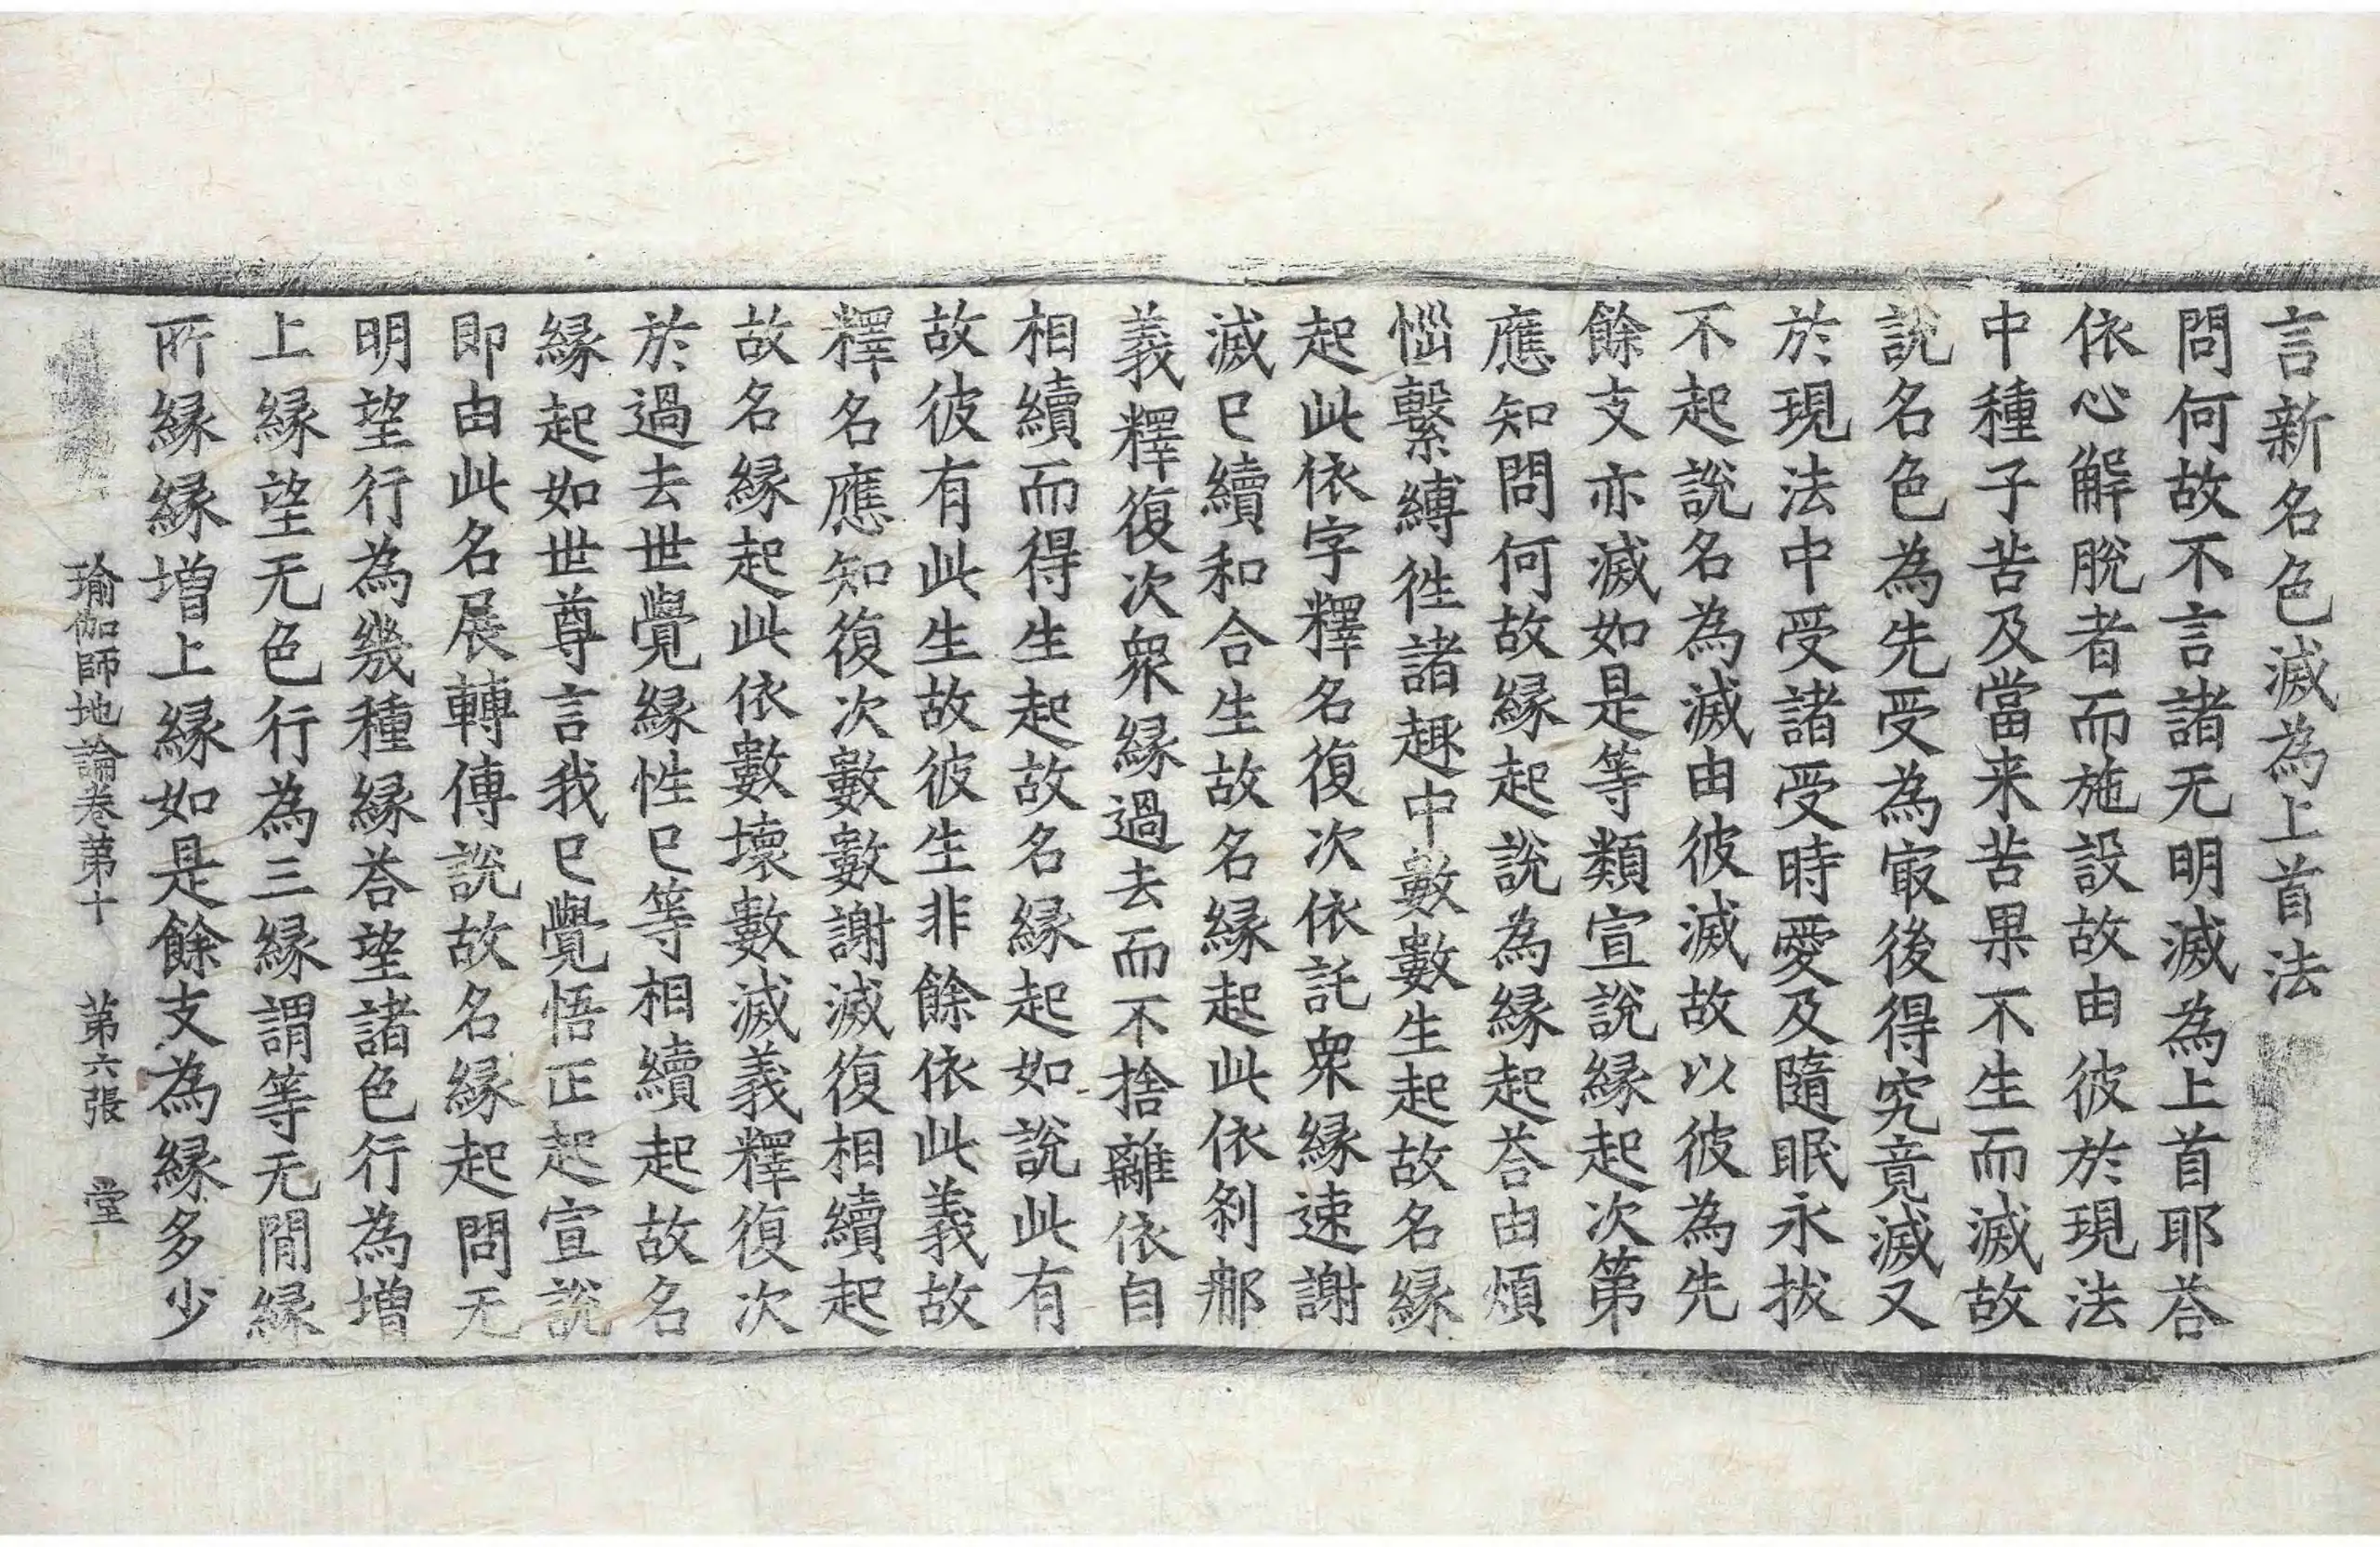 言新名色滅為上首法
問何故不言諸无明滅為上首耶荅
依心解脫者而施設故由彼於現法
中種子苦及當来苦果不生而滅故
說名色為先受為㝡後得究竟滅又
於現法中受諸受時愛及隨眠永拔
不起說名為滅由彼滅故以彼為先
餘支亦滅如是等類宣說縁起次第
應知問何故縁起說為縁起荅由煩
惱繫縛徃諸趣中數數生起故名縁
起此依字釋名復次依託衆縁速謝
滅已續和合生故名縁起此依刹那
義釋復次衆縁過去而不捨離依自
相續而得生起故名縁起如說此有
故彼有此生故彼生非餘依此義故
釋名應知復次數數謝滅復相續起
故名縁起此依數壞數滅義釋復次
於過去世覺縁性已等相續起故名
縁起如世尊言我已覺悟正起宣說
即由此名展轉傳說故名縁起問无
明望行為幾種縁荅望諸色行為增
上縁望无色行為三縁謂等无閒縁
所縁縁增上縁如是餘支為縁多少
瑜伽師地論卷第十 第六張 堂